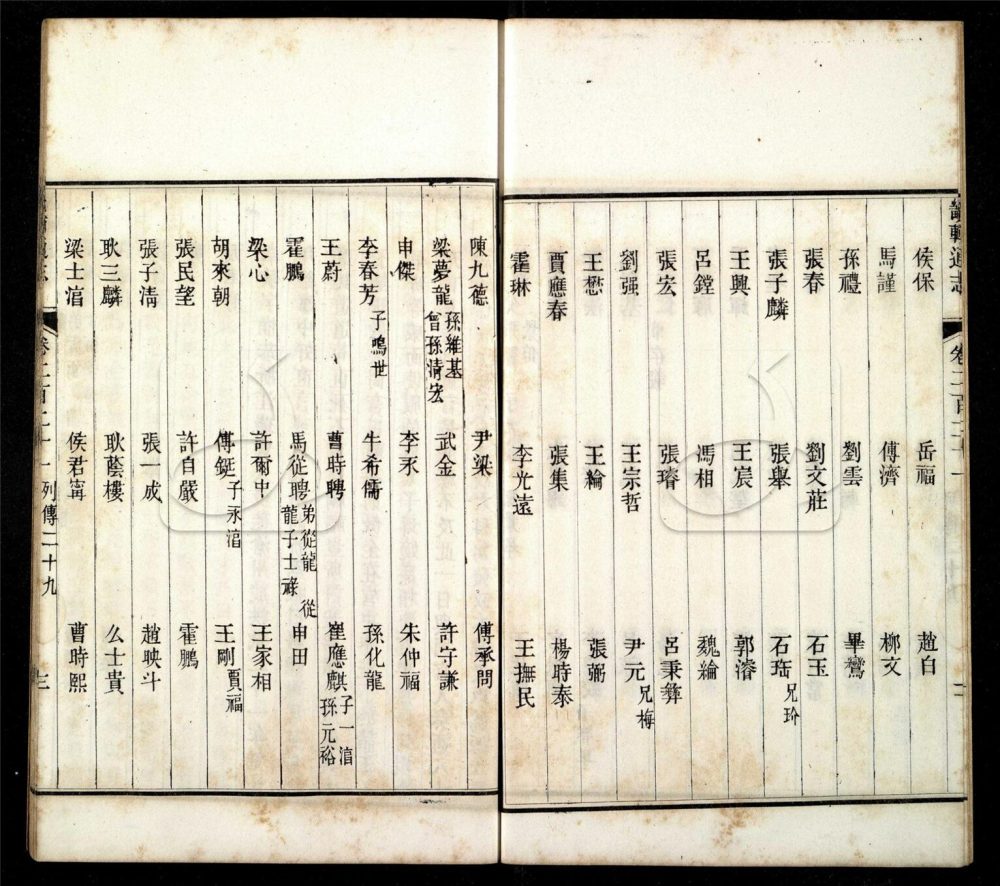 畿輔通志
卷二百二十一
二
侯保 岳福 趙白
馬謹 傅濟 柳文
孫禮 劉雲 畢鸞
張春 劉文莊 石玉
張子麟 張舉 石瑤兄玠
王興 王宸 郭濬
呂鏜 馮相 魏綸
張宏 張璿 呂秉彝
劉强 王宗哲 尹元兄梅
王懋 王綸 張弼
賈應春 張集 楊時泰
霍琳 李光遠 王撫民
陳九德 尹梁 傅承問
梁夢龍孫維基曾孫清宏 武金 許守謙
申傑 李承 朱仲福
李春芳子鳴世 牛希儒 孫化龍
王蔚 曹時聘 崔應麒子一淯孫元裕
霍鵬 馬從聘弟從龍從龍子士祿 申田
梁心 許爾中 王家相
胡來朝 傅鋌子永淯 王剛賈福
張民望 許自嚴 霍鵬
張子清 張一成 趙映斗
耿三麟 耿蔭樓 么士貴
梁士淯 侯君甯 曹時熙
卷二百二十一列傳二十九
三